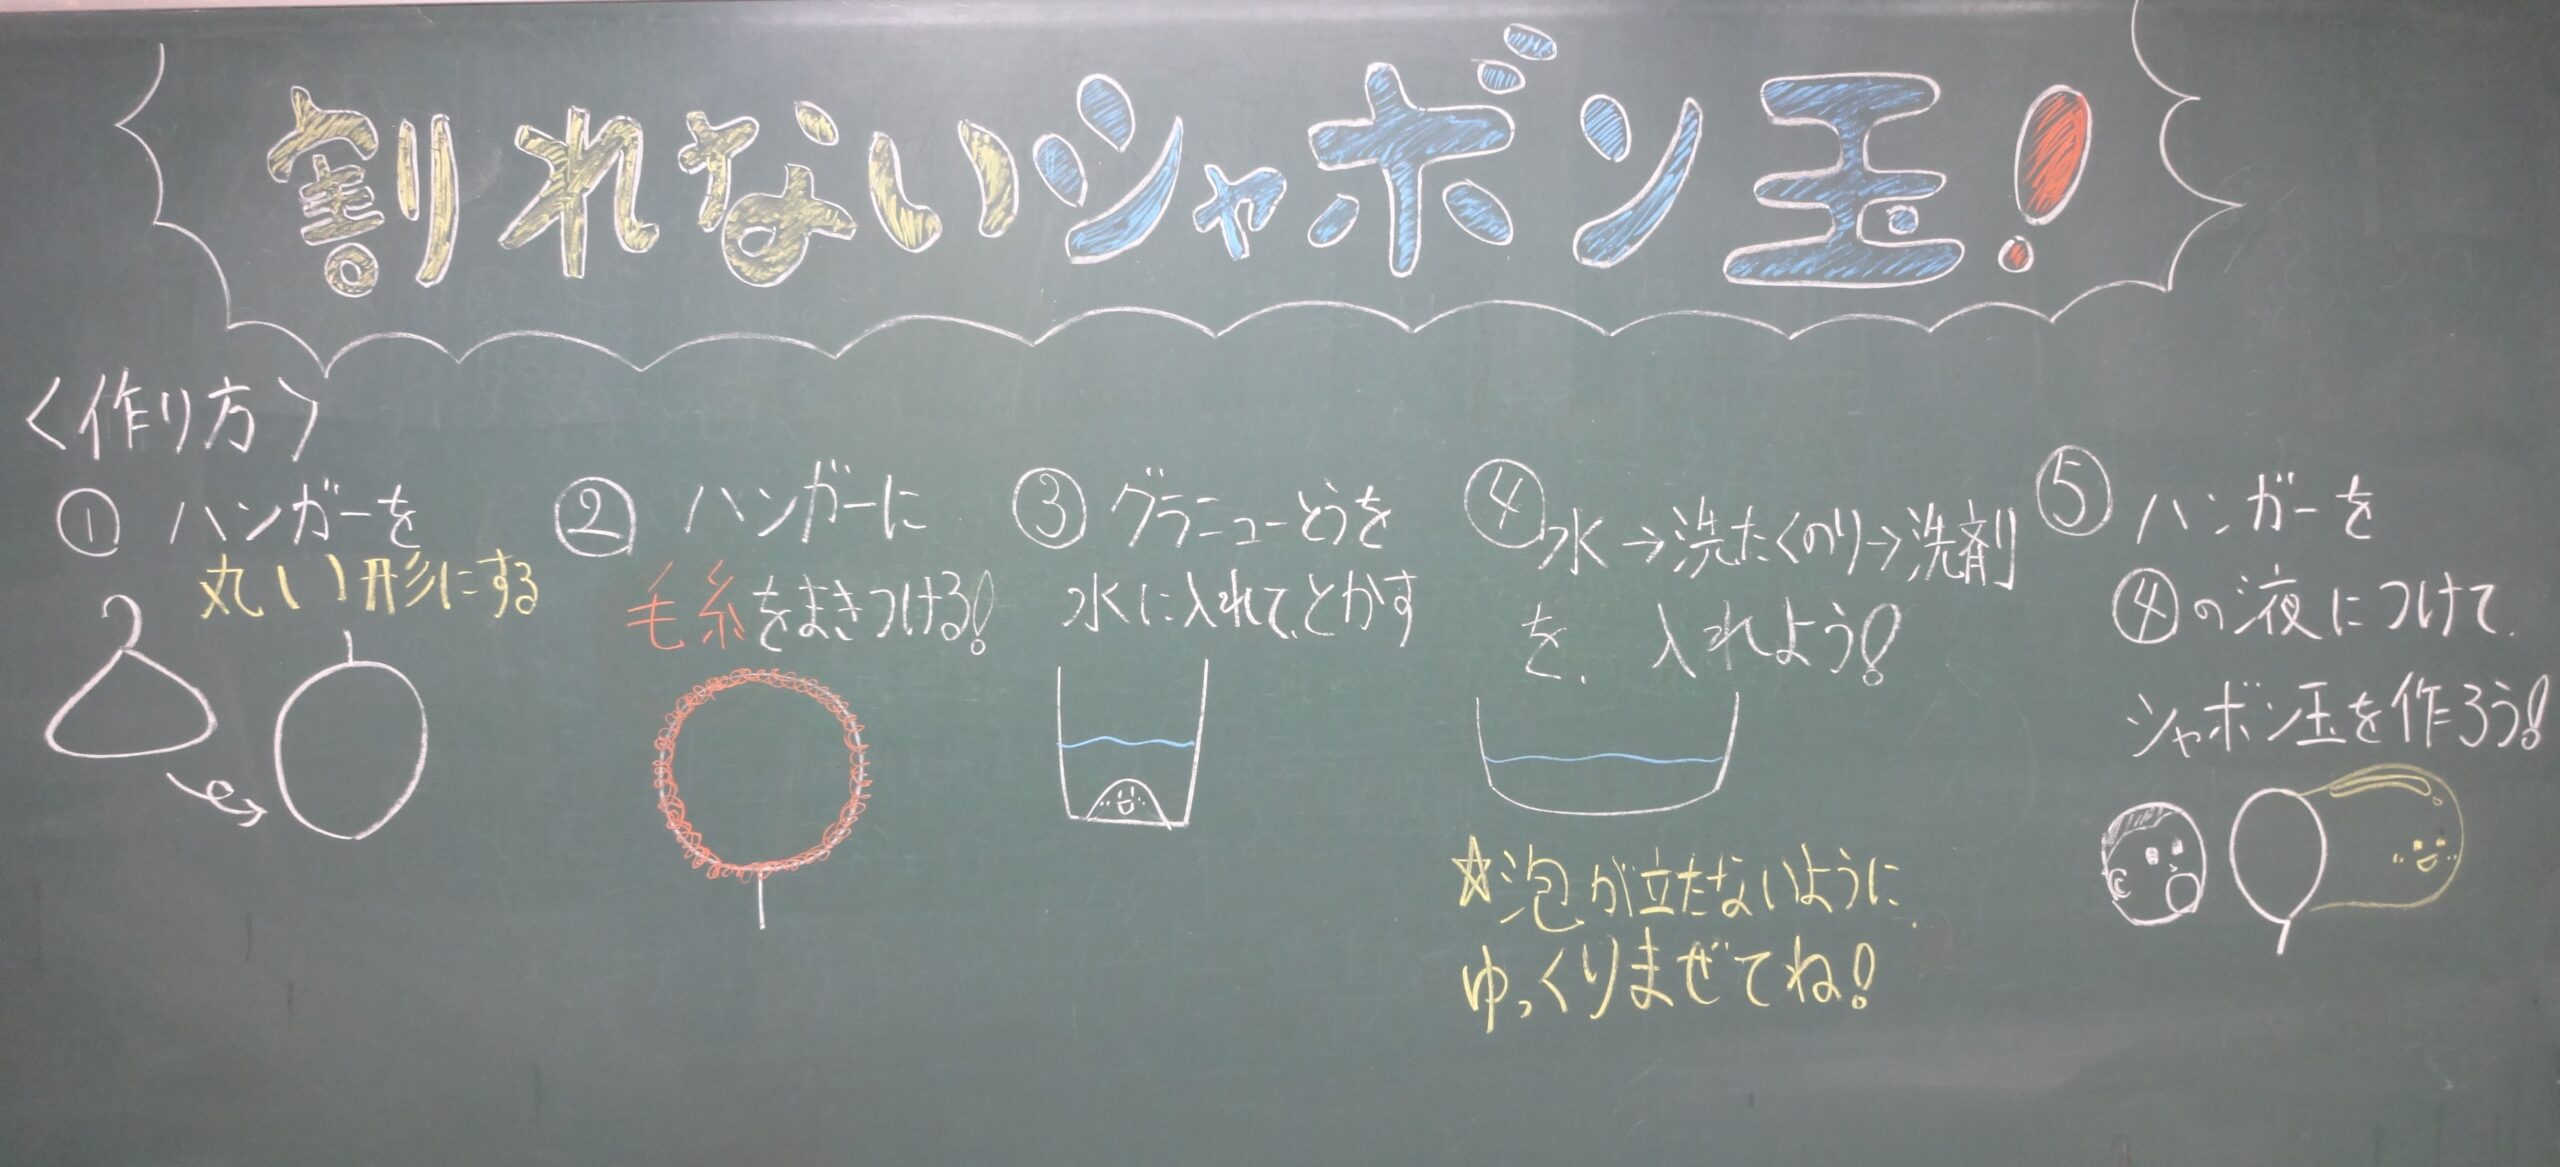 割れないシャボン玉!
〈作り方〉
① ハンガーを
丸い形にする
② ハンガーに
毛糸をまきつける!
③ グラニューとうを
水に入れて、とかす
④ 水→洗たくのり→洗剤
を、入れよう!
☆泡が立たないように、
ゆっくりまぜてね!
⑤ ハンガーを
④の液につけて、
シャボン玉を作ろう!